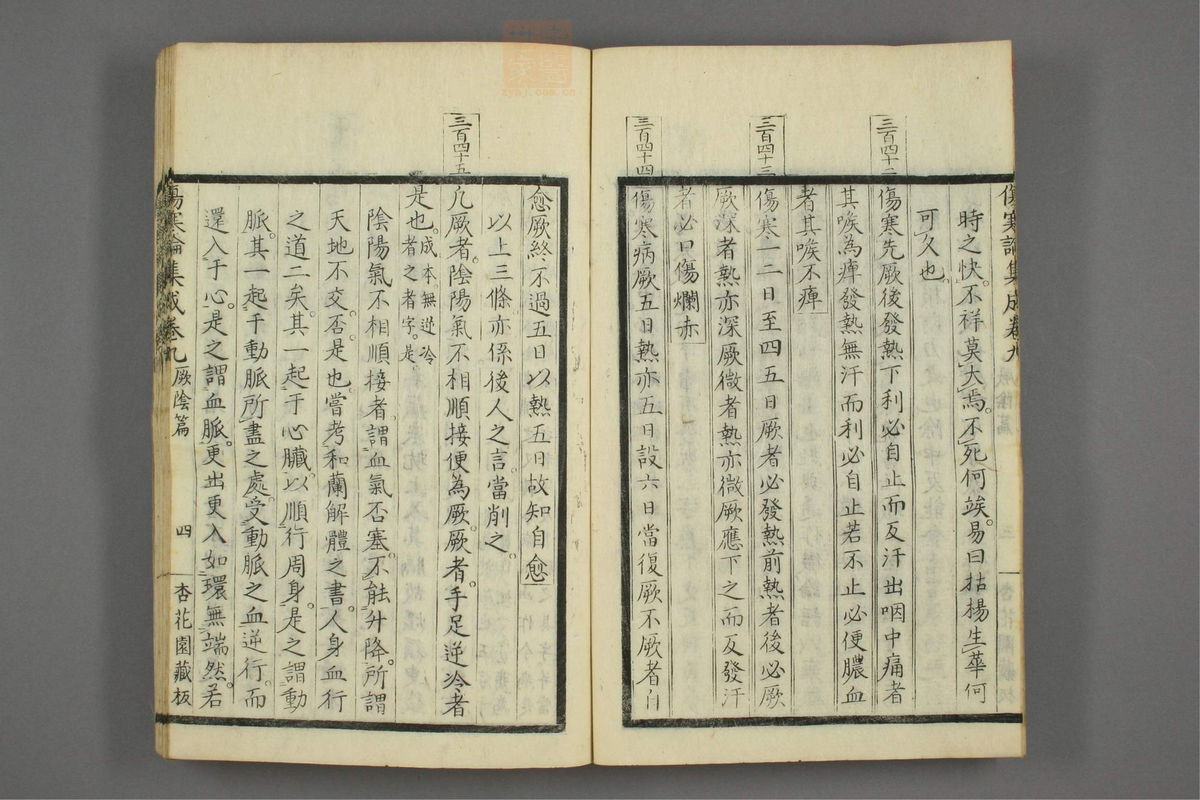 傷寒論集成卷九
時之快。不祥莫大焉。不死何竢。易曰枯楊生華何
可久也。
三百四十二
傷寒先厥後發熱下利必自止而反汗出咽中痛者
其喉為痺發熱無汗而利必自止若不止必便膿血
者其喉不痺
三百四十三
傷寒一二日至四五日厥者必發熱前熱者後必厥
厥深者熱亦深厥微者熱亦微厥應下之而反發汗
者必口傷爛赤
三百四十四
傷寒病厥五日熱亦五日設六日當復厥不厥者自
愈厥終不過五日以熱五日故知自愈
以上三條亦係後人之言當削之。
三百四十五
凡厥者。陰陽氣不相順接便為厥。厥者。手足逆冷者
是也。成本。無逆冷者之者字。是。
陰陽氣不相順接者。謂血氣否塞。不能升降。所謂
天地不交。否。是也。當考和蘭解體之書。人身血行
之道二矣。其一起于心臟。以順行周身。是之謂動
脈。其一起于動脈所盡之處。受動脈之血逆行。而
還入于心。是之謂血脈。更出更入如環無端然。若
傷寒論集成卷九 厥陰篇 四 杏花園藏板